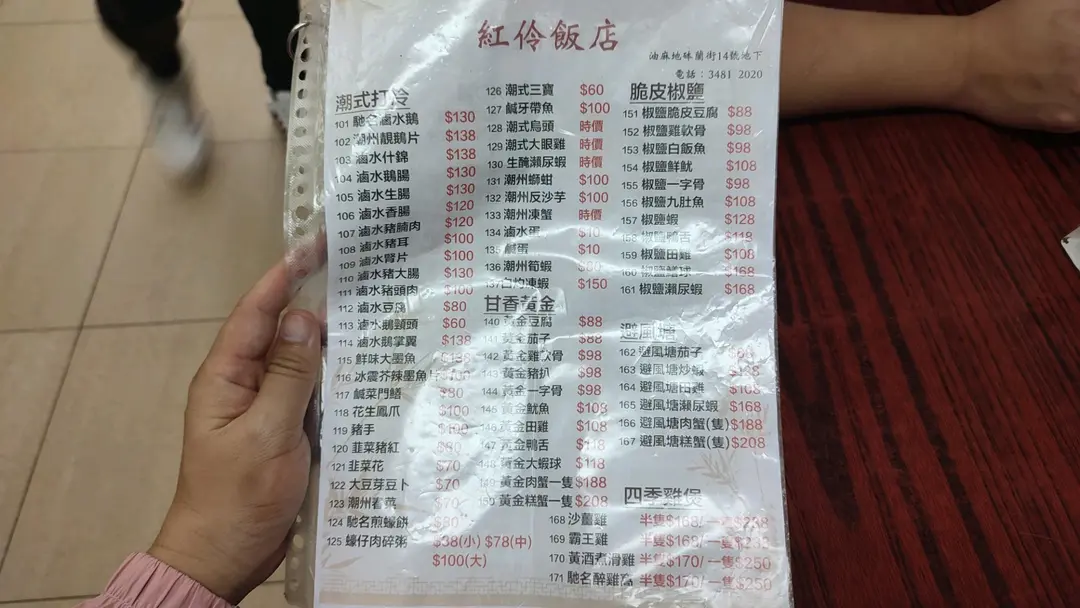 紅伶飯店
油麻地珠蘭街14號地下
電話：3481 2020
潮式打冷
101 馳名滷水鵝 $130
102 潮州靚鵝片 $138
103 滷水什錦 $138
104 滷水鵝腸 $130
105 滷水生腸 $130
106 滷水香腸 $120
107 滷水豬腩肉 $120
108 滷水豬耳 $100
109 滷水腎片 $100
110 滷水豬大腸 $130
111 滷水豬頭肉 $100
112 滷水豆腐 $80
113 滷水鵝頸頭 $60
114 滷水鵝掌翼 $138
115 鮮味大墨魚
116 冰震芥辣墨魚片
117 鹹菜門鱔 $80
118 花生鳳爪 $100
119 豬手 $100
120 韮菜豬紅
121 韮菜花 $70
122 大豆芽豆卜 $70
123 潮州春菜 $70
124 馳名煎蠔餅 $80
125 蠔仔肉碎粥 $38(小) $78(中)
$100(大)
126 潮式三寶 $60
127 鹹牙帶魚 $100
128 潮式烏頭 時價
129 潮式大眼雞 時價
130 生醃瀨尿蝦 時價
131 潮州螄蚶 $100
132 潮州反沙芋 $100
133 潮州凍蟹 時價
134 滷水蛋 $10
135 鹹蛋 $10
136 潮州筍蝦
137 白灼凍蝦 $150
甘香黃金
140 黃金豆腐 $88
141 黃金茄子 $88
142 黃金雞軟骨 $98
143 黃金豬扒 $98
144 黃金一字骨 $98
145 黃金魷魚 $108
146 黃金田雞 $108
147 黃金鴨舌 $118
148 黃金大蝦球 $118
149 黃金肉蟹一隻 $188
150 黃金糕蟹一隻 $208
脆皮椒鹽
151 椒鹽脆皮豆腐 $88
152 椒鹽雞軟骨 $98
153 椒鹽白飯魚 $98
154 椒鹽鮮魷 $108
155 椒鹽一字骨 $98
156 椒鹽九肚魚 $108
157 椒鹽蝦 $128
158 椒鹽鴨舌 $118
159 椒鹽田雞 $108
160 椒鹽鱔球 $168
161 椒鹽瀨尿蝦 $168
避風塘
162 避風塘茄子
163 避風塘炒蝦
164 避風塘田雞 $108
165 避風塘瀨尿蝦 $168
166 避風塘肉蟹(隻) $188
167 避風塘糕蟹(隻) $208
四季雞煲
168 沙薑雞 半隻$168/ 一隻$238
169 霸王雞 半隻$168/ 一隻
170 黃酒煮滑雞 半隻$170/ 一隻$250
171 馳名醉雞窩 半隻$170/ 一隻$250